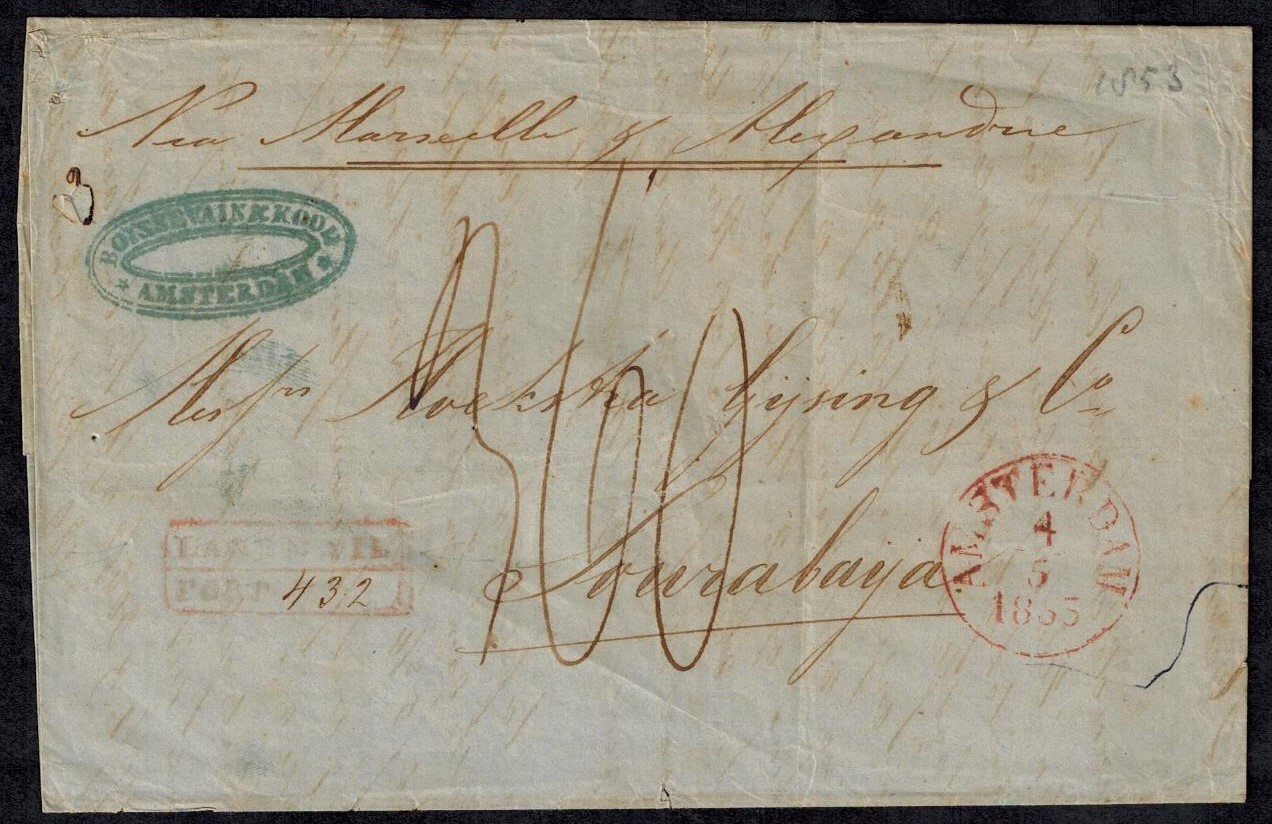 1853
Via Marseille & Alexandrie
3
BOISSEVAIN & KOOY
* AMSTERDAM *
Messrs Hoekstra Gijsing & Co
160
Sourabaija
LANDMAIL
PORT 432
AMSTERDAM
4
5
1853